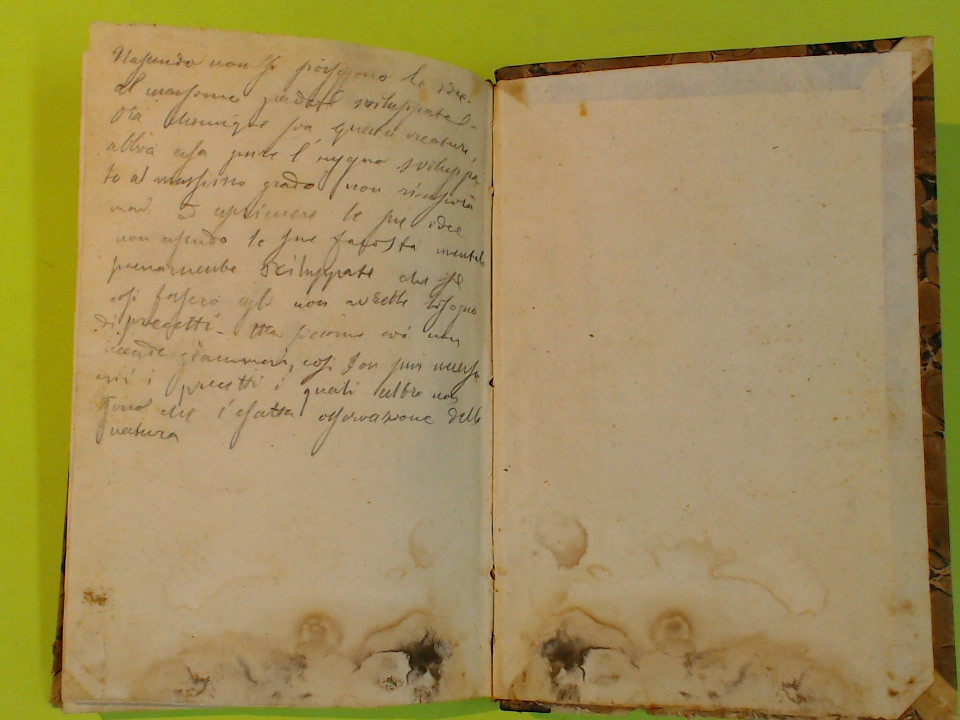 Nascendo non si posseggono le idee
al massimo grado sviluppate
Ora chiunque sia questa creatura,
abbia essa pure l'ingegno sviluppa
to al massimo grado non riuscirà
mai ad esprimere le sue idee
non essendo le sue facoltà mentali
pienamente sviluppate che se
così fossero egli non avrebbe bisogno
di precetti. Ma siccome ciò non
accade giammai, così son pur necessa
rii i precetti i quali altro non
sono che l'esatta osservazione della
natura